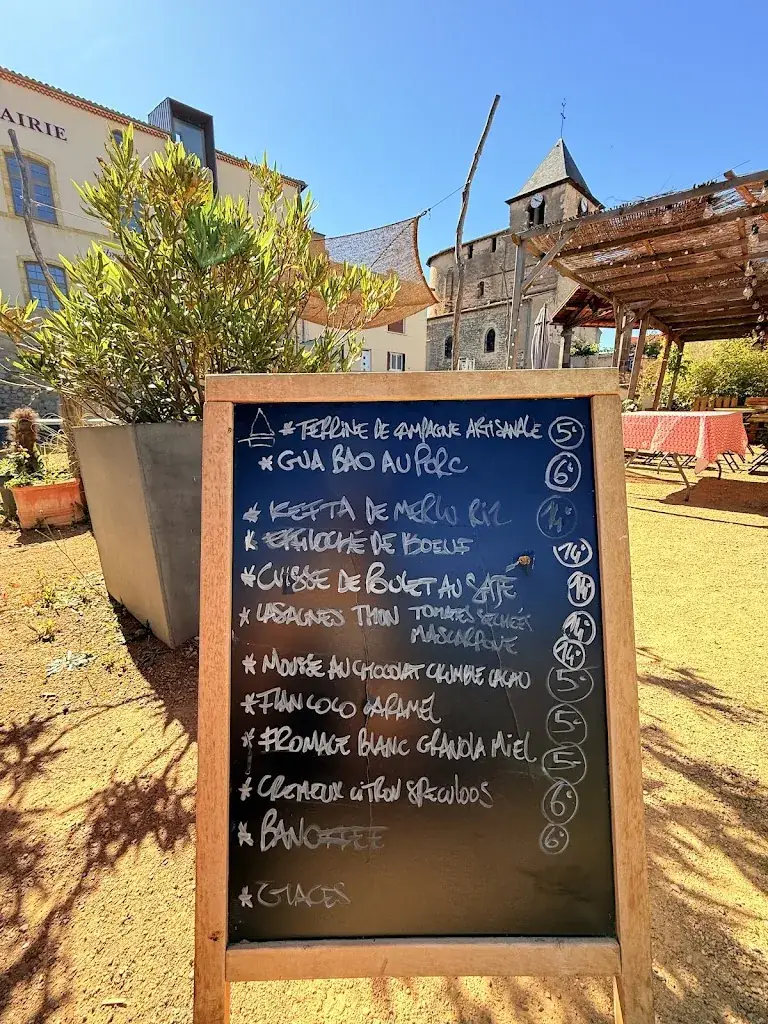 AIRIE
* TERRINE DE CAMPAGNE ARTISANALE 5.
* GUA BAO AU PORC 6.
* KEFTA DE MERLU RIZ 14.
* EFFILOCHÉ DE BOEUF 14.
* CUISSE DE POULET AU SATE 14
* LASAGNES THON TOMATES SECHÉES 14.
MASCARPONE 14.
* MOUSSE AU CHOCOLAT CRUMBLE CACAO 5.
* FLAN COCO CARAMEL 5.
* FROMAGE BLANC GRANOLA MIEL 5
* CREMEUX CITRON SPECULOOS 6.
* BANOFFEE 6.
* GLACES